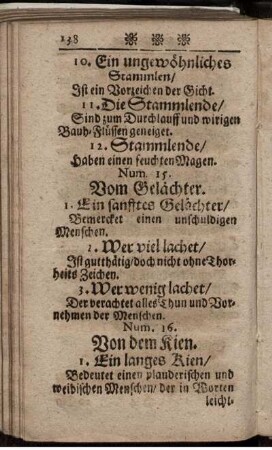 138 * * *
10. Ein ungewöhnliches
Stammlen/
Ist ein Vorzeichen der Gicht.
11. Die Stammlende/
Sind zum Durchlauff und wirigen
Bauh-Flüssen geneiget.
12. Stammlende/
Haben einen feuchten Magen.
Num. 15.
Vom Gelächter.
1. Ein sanfftes Gelächter/
Bemercket einen unschuldigen
Menschen.
2. Wer viel lachet/
Ist gutthätig/doch nicht ohne Thor-
heits Zeichen.
3. Wer wenig lachet/
Der verachtet alles Thun und Vor-
nehmen der Menschen.
Num. 16.
Von dem Kien.
1. Ein langes Kien/
Bedeutet einen plauderischen und
weibischen Menschen/ der in Worten
leicht-